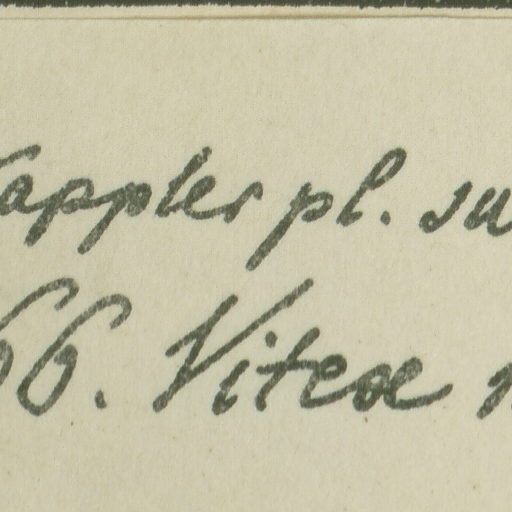 Kappler pl. su
66. Vitex